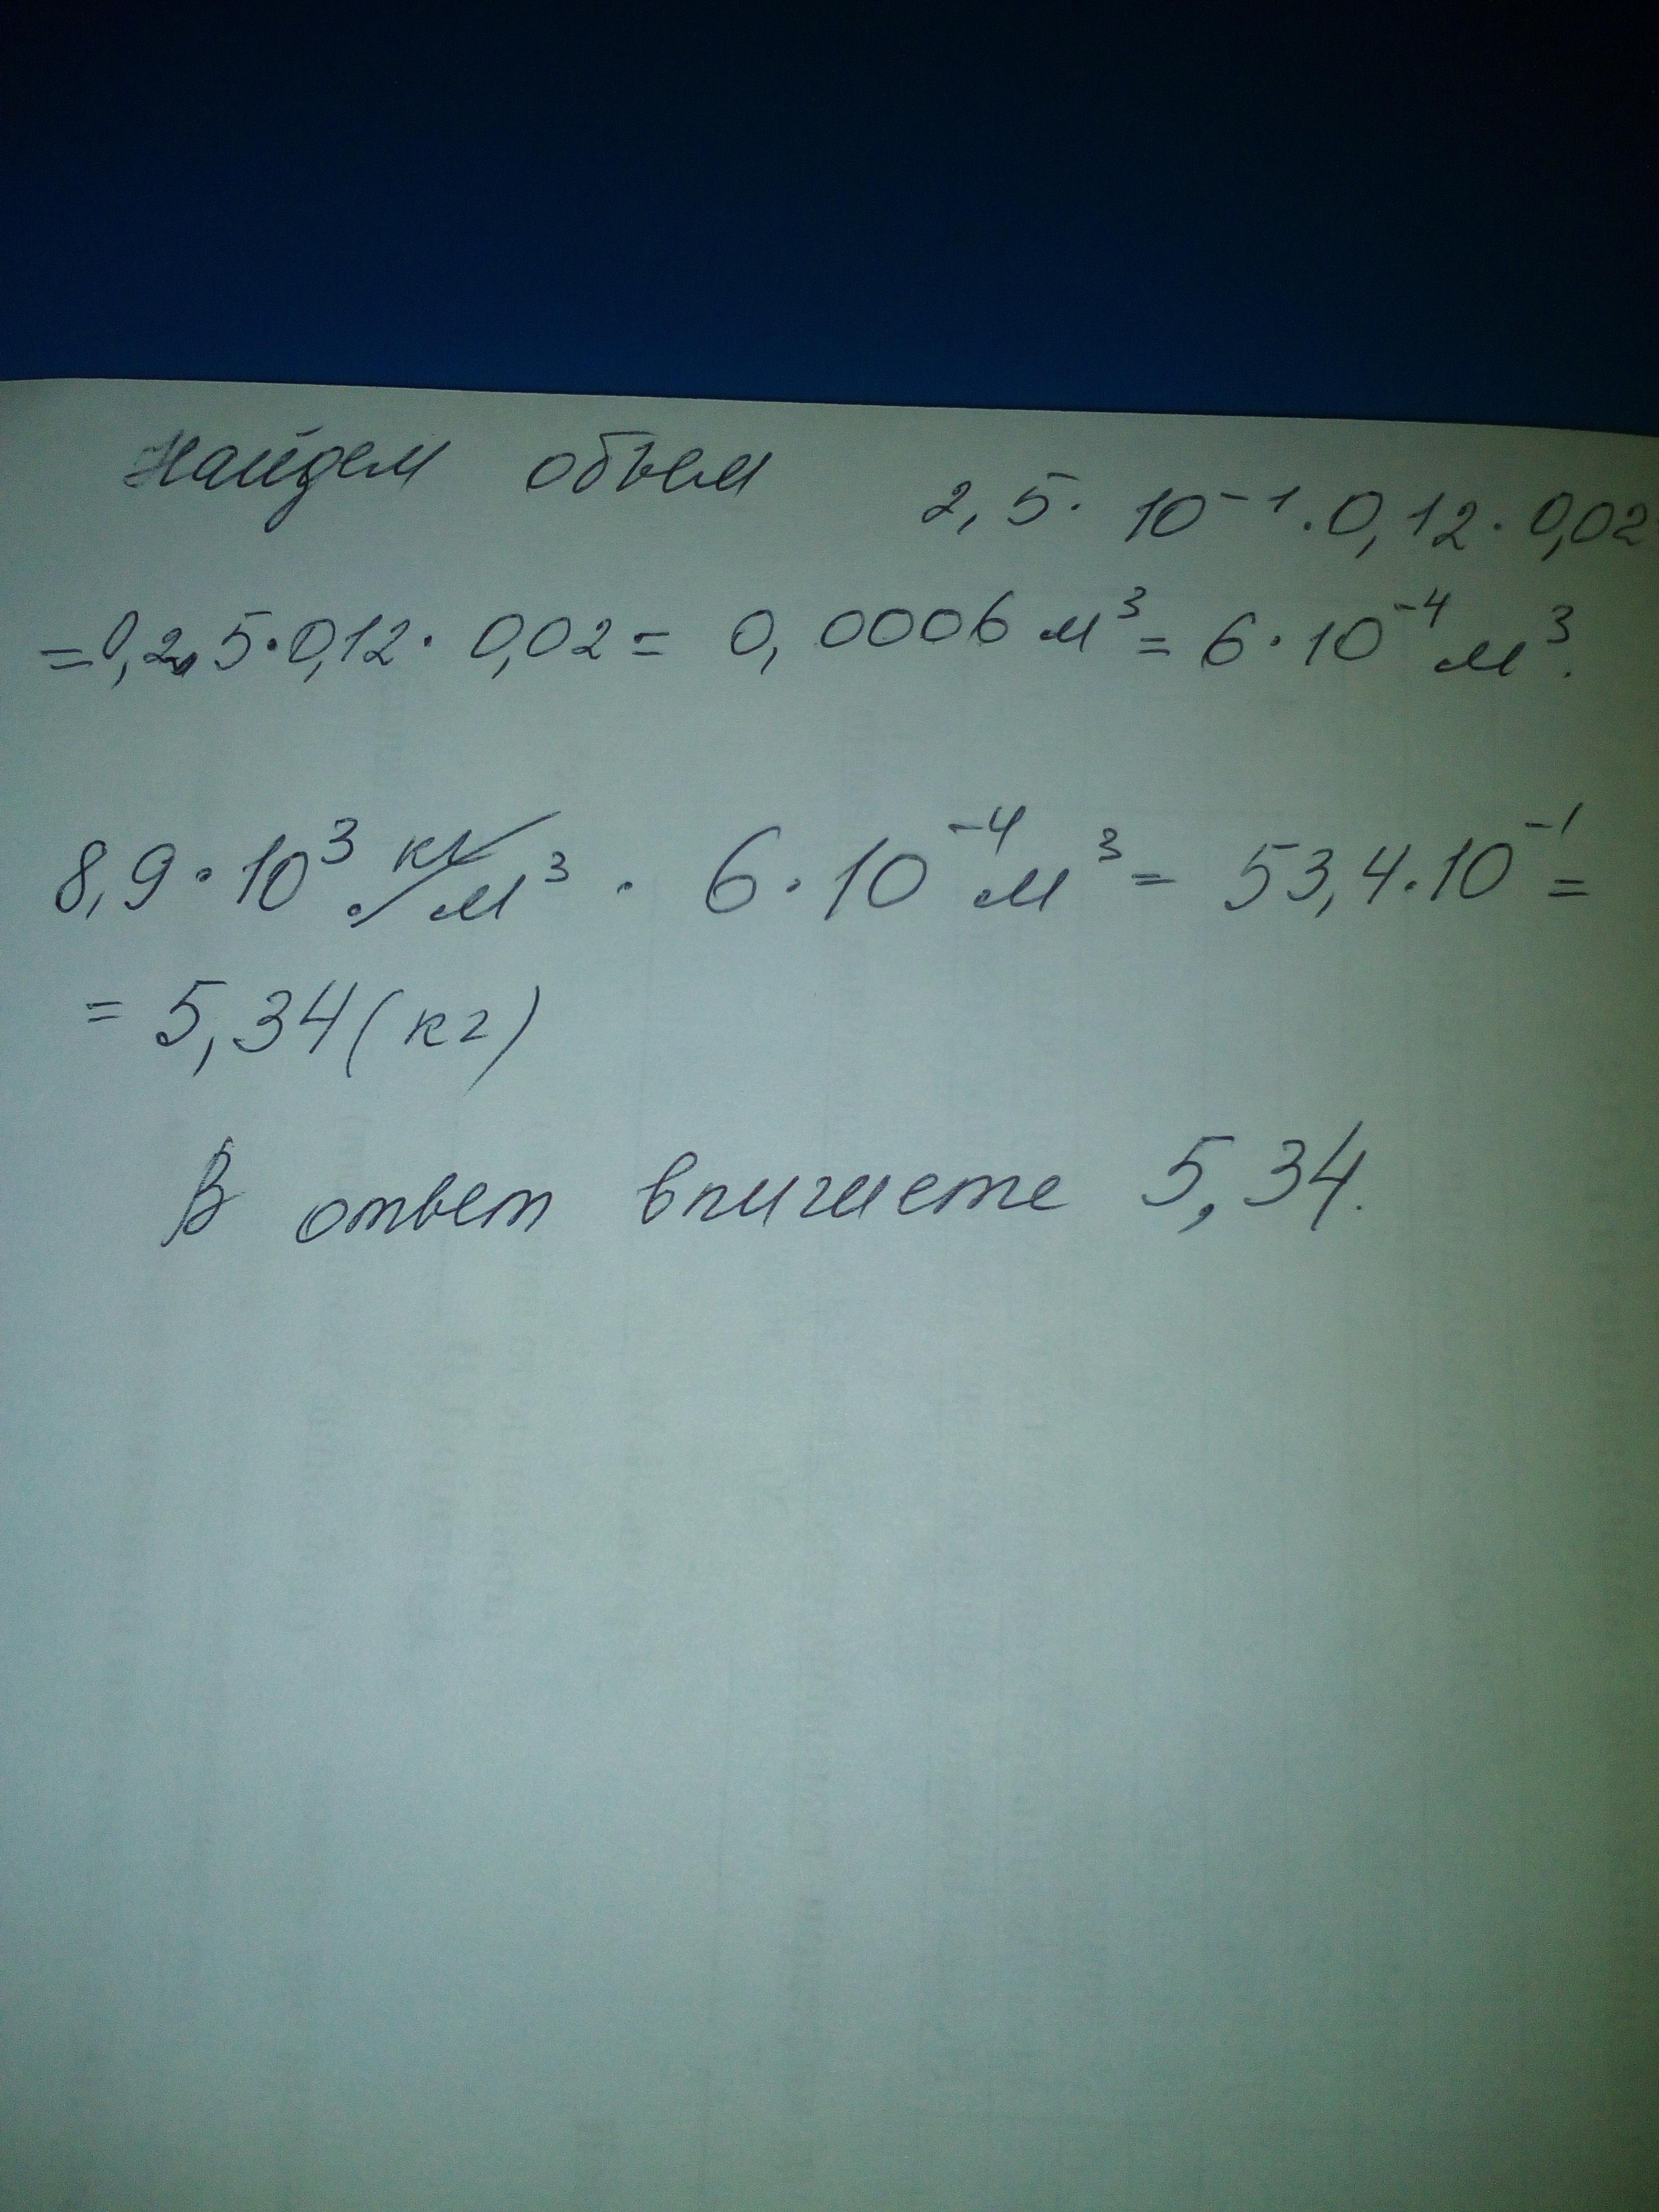 Найдем объем 2,5 · 10⁻¹ · 0,12 · 0,02
= 0,25 · 0,12 · 0,02 = 0,0006 м³ = 6 · 10⁻⁴ м³.
8,9 · 10³ кг/м³ · 6 · 10⁻⁴ м³ = 53,4 · 10⁻¹ =
= 5,34 (кг)
В ответ впишете 5,34.